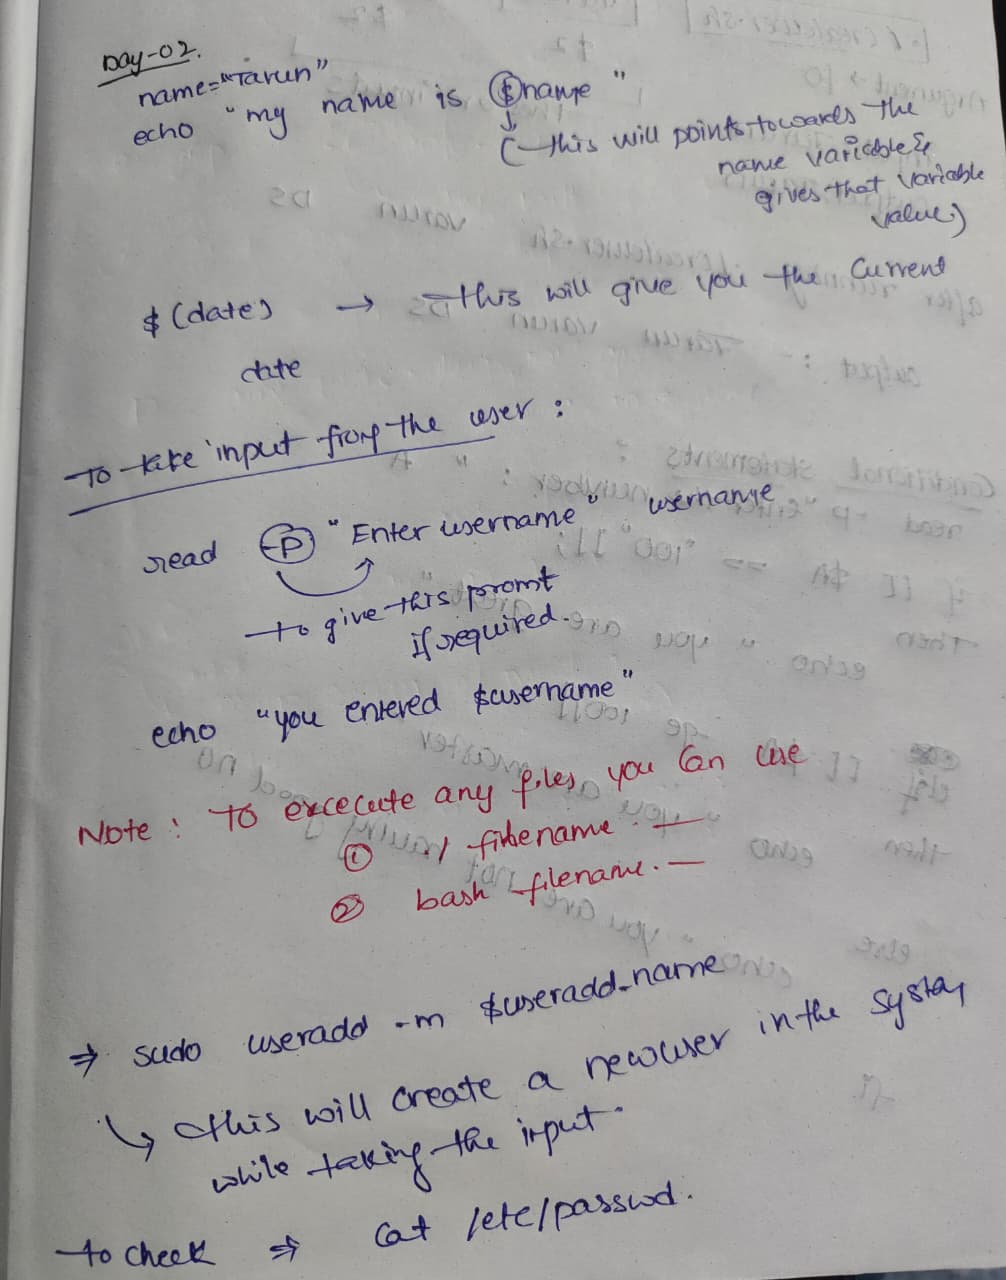 Day-02.
name="Tarun"
echo "my name is $name"
(this will points towards the
name variable &
gives that variable
value)
$(date) → this will give you the current
date
To take input from the user :
read -p "Enter username" username
to give this promt
if required.
echo "you entered $username"
Note : To excecute any files, you can use
① ./ filename. —
② bash filename. —
⇒ sudo useradd -m $useradd_name
↳ this will create a newuser in the system
while taking the input.
to check ⇒ cat /etc/passwd.